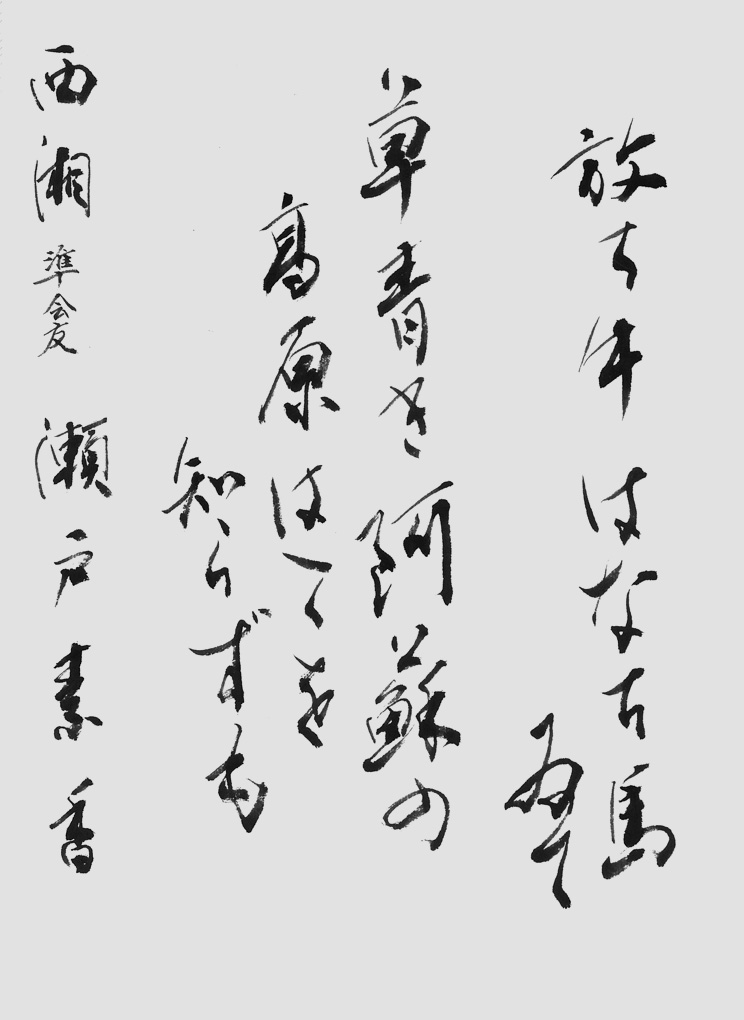 放ち牛はなち馬
ゐて
草青き阿蘇の
高原はてを
知らずも
西湘 準会友 瀬戸素香